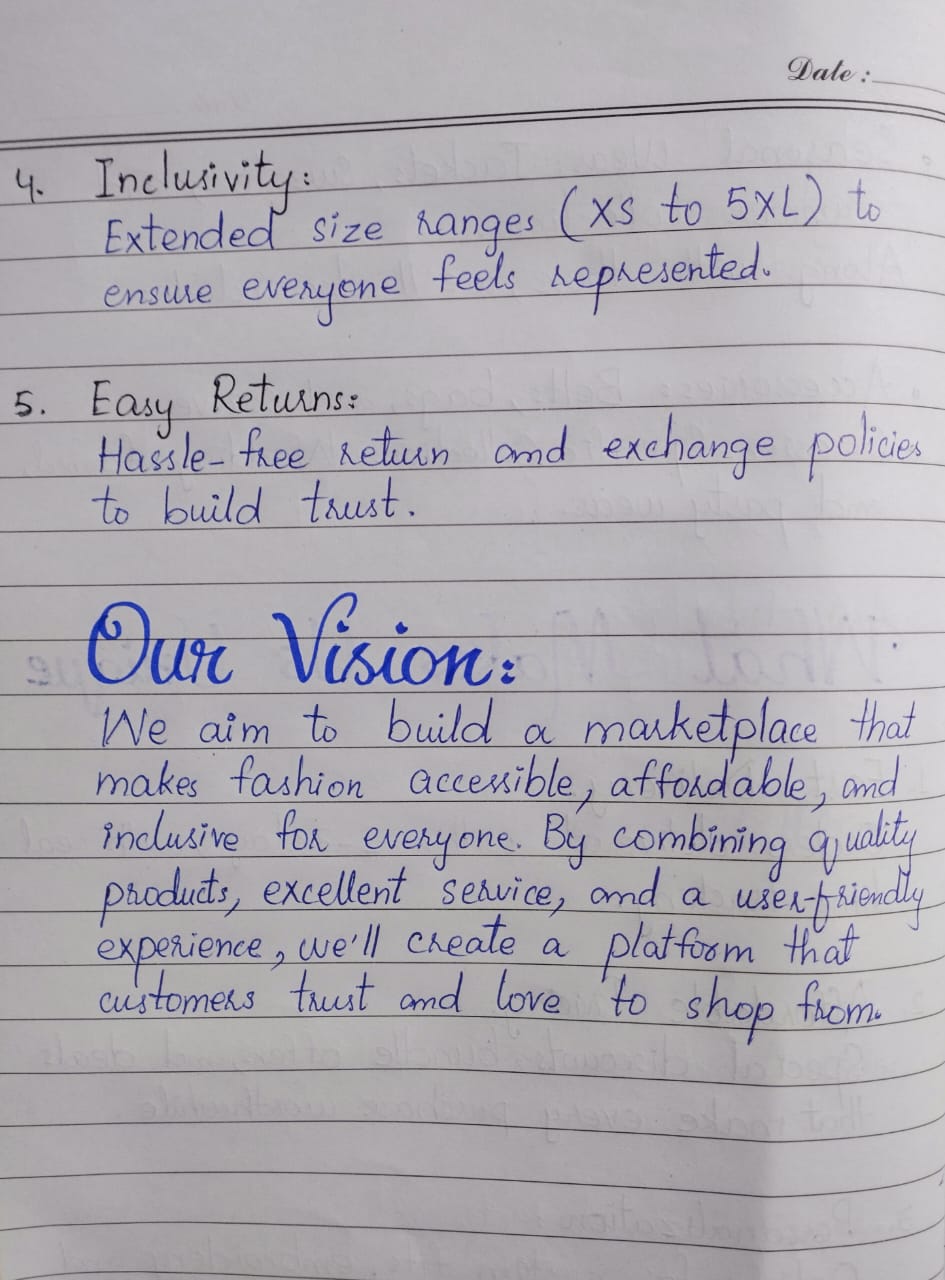 Date :
4. Inclusivity:
Extended size ranges (XS to 5XL) to
ensure everyone feels represented.
5. Easy Returns:
Hassle-free return and exchange policies
to build trust.
Our Vision:
We aim to build a marketplace that
makes fashion accessible, affordable, and
inclusive for everyone. By combining quality
products, excellent service, and a user-friendly
experience, we'll create a platform that
customers trust and love to shop from.